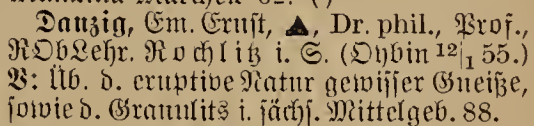 Danzig, Em. Ernst, ▲, Dr. phil., Prof.,
ROb Lehr. Rochlitz i. S. (Oybin 12|1 55.)
V: Üb. d. eruptive Natur gewisser Gneiße,
sowie d. Granulits i. sächs. Mittelgeb. 88.